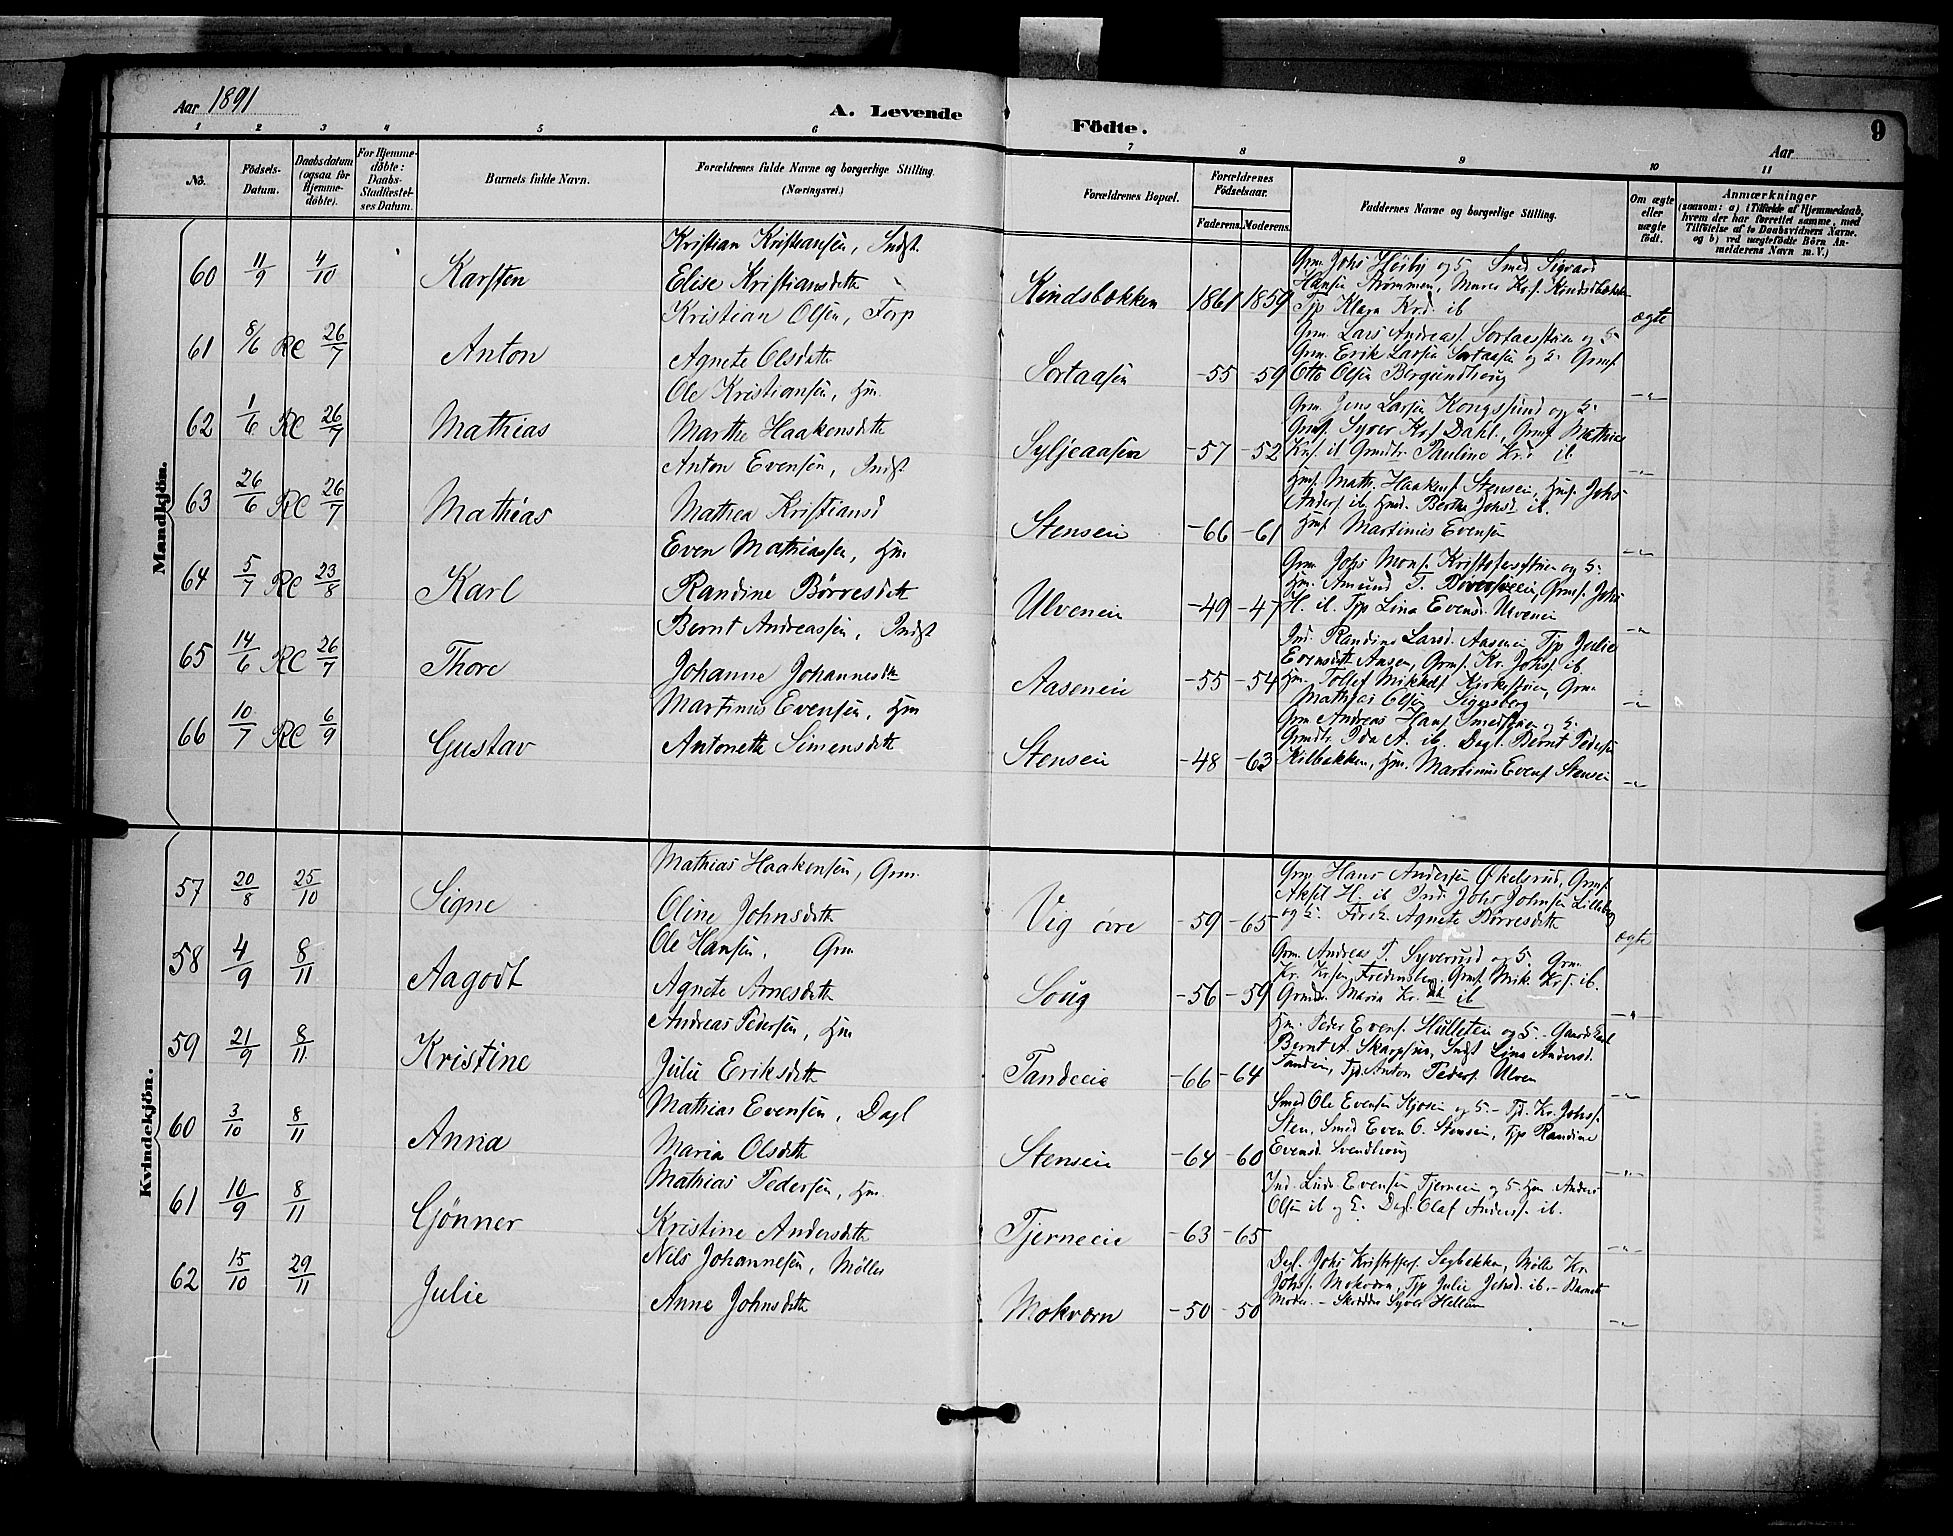 Aar 1891
A. Levende Födte.
9
Aar
1 2 3 4 5 6 7 8 9 10 11
No.
Födsels-Datum.
Daabsdatum (ogsaa for Hjemmedöbte).
For Hjemmedöbte: Daabs-Stadfæstelses Datum.
Barnets fulde Navn.
Forældrenes fulde Navne og borgerlige Stilling. (Næringsvei.)
Forældrenes Bopæl.
Forældrenes Födselsaar.
Faderens. Moderens.
Faddernes Navne og borgerlige Stilling.
Om ægte eller uægte födt.
Anmærkninger
(saasom: a) i Tilfælde af Hjemmedaab, hvem der har forrettet samme, med Tilföielse af to Daabsvidners Navne, og b) ved uægtefödte Börn Anmelderens Navn m. V.)
Mandkjön.
60 11/9 4/10 Karsten
Kristian Kristiansen, Indst.
Elise Kristiansdtt
Kindsbækken 1861 1859
Grm. Johs Høiby og 5. Smed Sigvard
Hansen Strømmen, Maren Krs. Kindsbækken
Tjp Klara Krd. ib
ægte
61 8/6 RC 26/7 Anton
Kristian Olsen, Torp
Agnete Olsdtt
Sortaasen -55 -59
Grm. Lars Andreas. Sortaasstuen og 5-
Grm. Erik Larsen Sortaasen og 5. Grmf.
Otto Olsen Bergundhaug
-"-
62 1/6 RC 26/7 Mathias
Ole Kristiansen, Hm.
Marthe Haakensdtt
Syljeaasen -57 -52
Grm. Jens Larsen Kongssund og 5-
Grmf. Syver Krs. Dahl., Grmf. Mathias
Krs. ib Grmdtr. Pauline Krd. ib
-"-
63 26/6 RC 26/7 Mathias
Anton Evensen, Indst
Mathea Kristiansd
Stenseie -66 -61
Hmf. Math. Haakens. Stenseie, Hmf. Johs.
Anders. ib. Hmd. Berthe Johsd. ib.
Hmf. Martinius Evensen
-"-
64 5/7 RC 23/8 Karl
Even Mathiassen, Hm
Randine Børresdtt
Ulveneie -49 -47
H. ib. Tjp Lina Evensd. Ulveneie
-"-
65 14/6 RC 26/7 Thore
Bernt Andreassen, Indst
Johanne Johannesdtt
Aaseneie -55 -54
Ind. Randine Larsd. Aaseneie Tjp Julie
Evensdtt Aasen, Grmf. Kr. Johs. ib
Hm. Tollef Mikkels. Kirkestuen, Grm.
Mathias Olsen
-"-
66 10/7 RC 6/9 Gustav
Martinus Evensen, Hm
Antonette Simensdtt
Stenseie -48 -63
Grm Andreas Hans. Smedstuen og 5.
Grmdtr. Ida A. ib. Dagl. Bernt Pedersen
Kilbakken, Hm. Martinus Evens. Stenseie
-"-
Kvindekjön.
57 20/8 25/10 Signe
Mathias Haakensen, Grm.
Oline Johnsdtt
Vig øvre -59 -65
Grm. Hans Andersen Økelsrud, Grmf.
Aksel H. ib Ind. Johs Johnsen Lilleberg
og 5. Forsk. Agnete Børresdtt
ægte
58 4/9 8/11 Aagodt
Ole Hansen, Grm
Agnete Arnesdtt
Soug -56 -59
Grm. Andreas T. Syverud og 5. Grm.
Kr. Krsen, Fredensberg, Grmf. Mik. Krs. ib.
Grmdtr. Maria Kr.dtt ib
-"-
59 21/9 8/11 Kristine
Andreas Pedersen, Hm
Julie Eriksdtt
Tandeeie -66 -64
Hm. Peder Evens. Hulleteie og 5.
Bernt A. Skarpsno, Indst Lina Andersd.
Tandeie, Tjd. Anton Peders. Ulven
-"-
60 3/10 8/11 Anna
Mathias Evensen, Dagl
Maria Olsdtt
Stenseie -64 -60
Smed Ole Evensen Skjoseie og 5- Tjd. Kr. Johs.
Sten, Smed Even O. Stenseie, Tjp Randine
Evensd. Svendhaug
-"-
61 10/9 8/11 Gjönner
Mathias Pedersen, Hm.
Kristine Andersdtt
Tjerneeie -63 -65
Ind. Ludv. Evensen Tjerneeie og 5 Hm. Anders
Olsen ib og 5. Dagl. Olaf Anders. ib.
-"-
62 15/10 29/11 Julie
Nils Johannesen, Møller
Anne Johnsdtt
Mokværn -50 -50
Dagl. Johs Kristoffers. Sagbakken, Mølle Kr.
Johs. Mokværn, Tjp Julie Johsd. ib. - Barnets
Moder. - Skrædder Syver Hellum
-"-